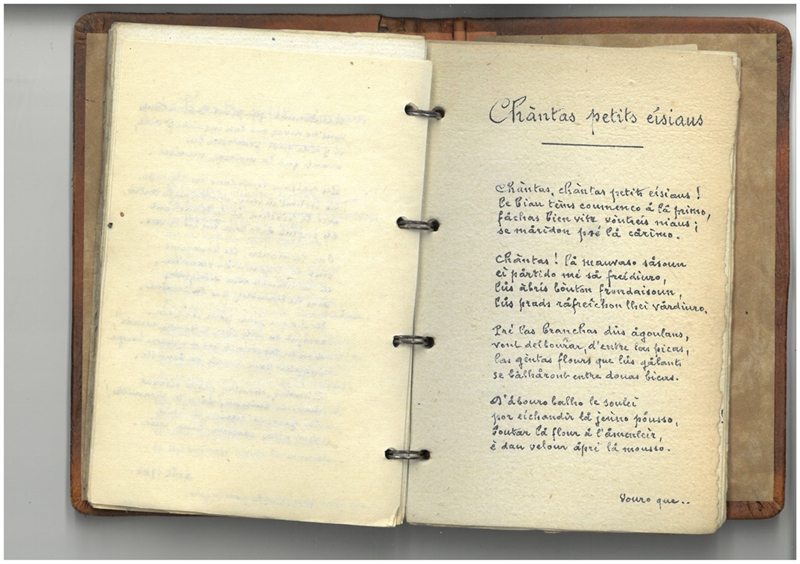 Chàntas petits eísiaus
Chàntas, chàntas petits eísiaus !
Le biau têms coumenço à là primo,
fàchas bien vite vòntreis niaus ;
se màridon pré là càrimo.
Chàntas ! là mauvaso sàsoun
ei pàrtido mé sà freídiuro,
lùs àbris bòutон froundaisoun,
lùs prads ràfreichon lhei vàrduro.
Pré las branchas dùs àgoulans,
vont debourrar, d'entre las picas,
las gintas flours que lùs gàlants
se bàlhàront entre douas bicas.
D'àbouro balho le souleí
por eíchandir là jeuno pòusso,
à l'àmenleír,
è dau velour àpré là mousso.
Vouro que..